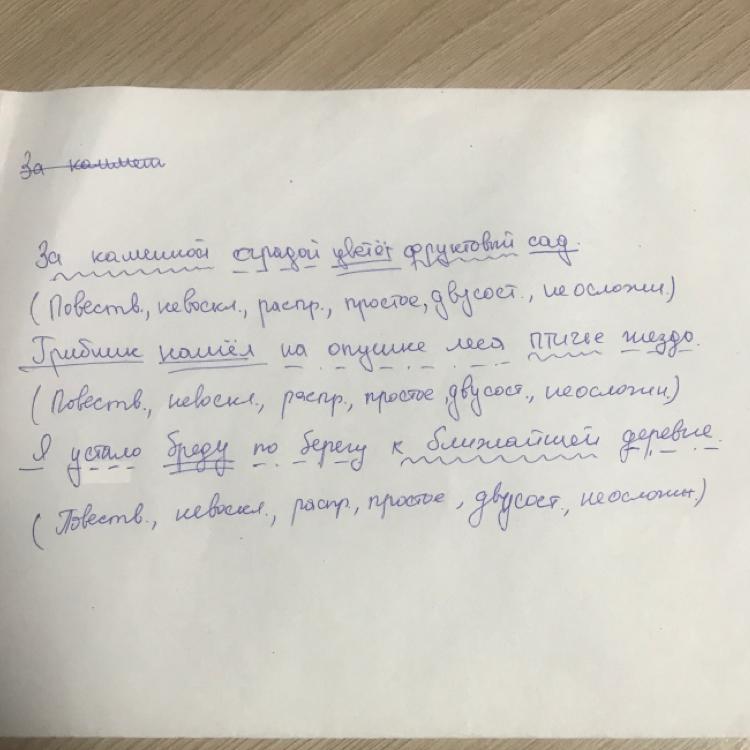 За каммета
За каменной оградой цветёт фруктовый сад.
(Повеств., невоскл., распр., простое, двусост., неосложн.)
Грибник нашёл на опушке леса птичье гнездо.
(Повеств., невоскл., распр., простое, двусост., неосложн.)
Я устало бреду по берегу к ближайшей деревне.
(Повеств., невоскл., распр., простое, двусост., неосложн.)